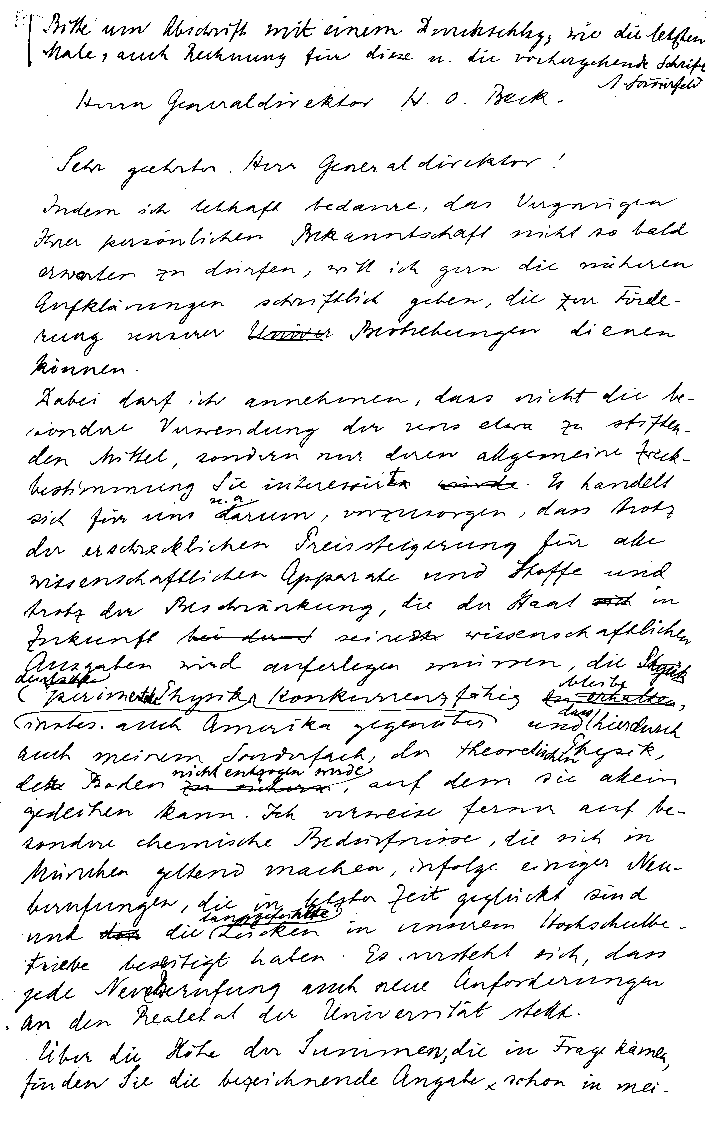 Bitte um Abschrift mit einem Durchschlag, wie die letzten
Male, auch Rechnung für diese u. die vorhergehende Schrift
A. Sommerfeld
Herrn Generaldirektor H. O. Beck.
Sehr geehrter Herr Generaldirektor!
Indem ich lebhaft bedaure, das Vergnügen
Ihrer persönlichen Bekanntschaft nicht so bald
erwarten zu dürfen, will ich gern die näheren
Aufklärungen schriftlich geben, die zur Förde-
rung unserer Univer Bestrebungen dienen
können.
Dabei darf ich annehmen, dass nicht die be-
sondere Verwendung der uns etwa zu stiften-
den Mittel, sondern nur deren allgemeine Zweck-
bestimmung Sie interessirt würde. Es handelt
u. a.
sich für uns darum, vorzusorgen, dass trotz
der erschrecklichen Preissteigerung für alle
wissenschaftlichen Apparate und Stoffe und
trotz der Beschränkung, die der Staat sich in
Zukunft bei den seinen wissenschaftlichen
Ausgaben wird auferlegen müssen, die
deutsche bleibe
Physik konkurrenzfähig zu erhalten,
insbes. auch Amerika gegenüber und dass hierdurch
auch meinem Sonderfach, der theoretischen Physik,
nicht entzogen würde
der Boden zu sichern, auf dem sie allein
gedeihen kann. Ich verweise ferner auf be-
sondere chemische Bedürfnisse, die sich in
München geltend machen, infolge einiger Neu-
berufungen, die in letzter Zeit geglückt sind
langgefühlte
und die Lücken in unserem Hochschulbe-
triebe beseitigt haben. Es versteht sich, dass
jede Neuberufung auch neue Anforderungen
an den Realetat der Universität stellt.
Über die Höhe der Summen, die in Frage kämen,
finden Sie die bezeichnende Angabe schon in mei-